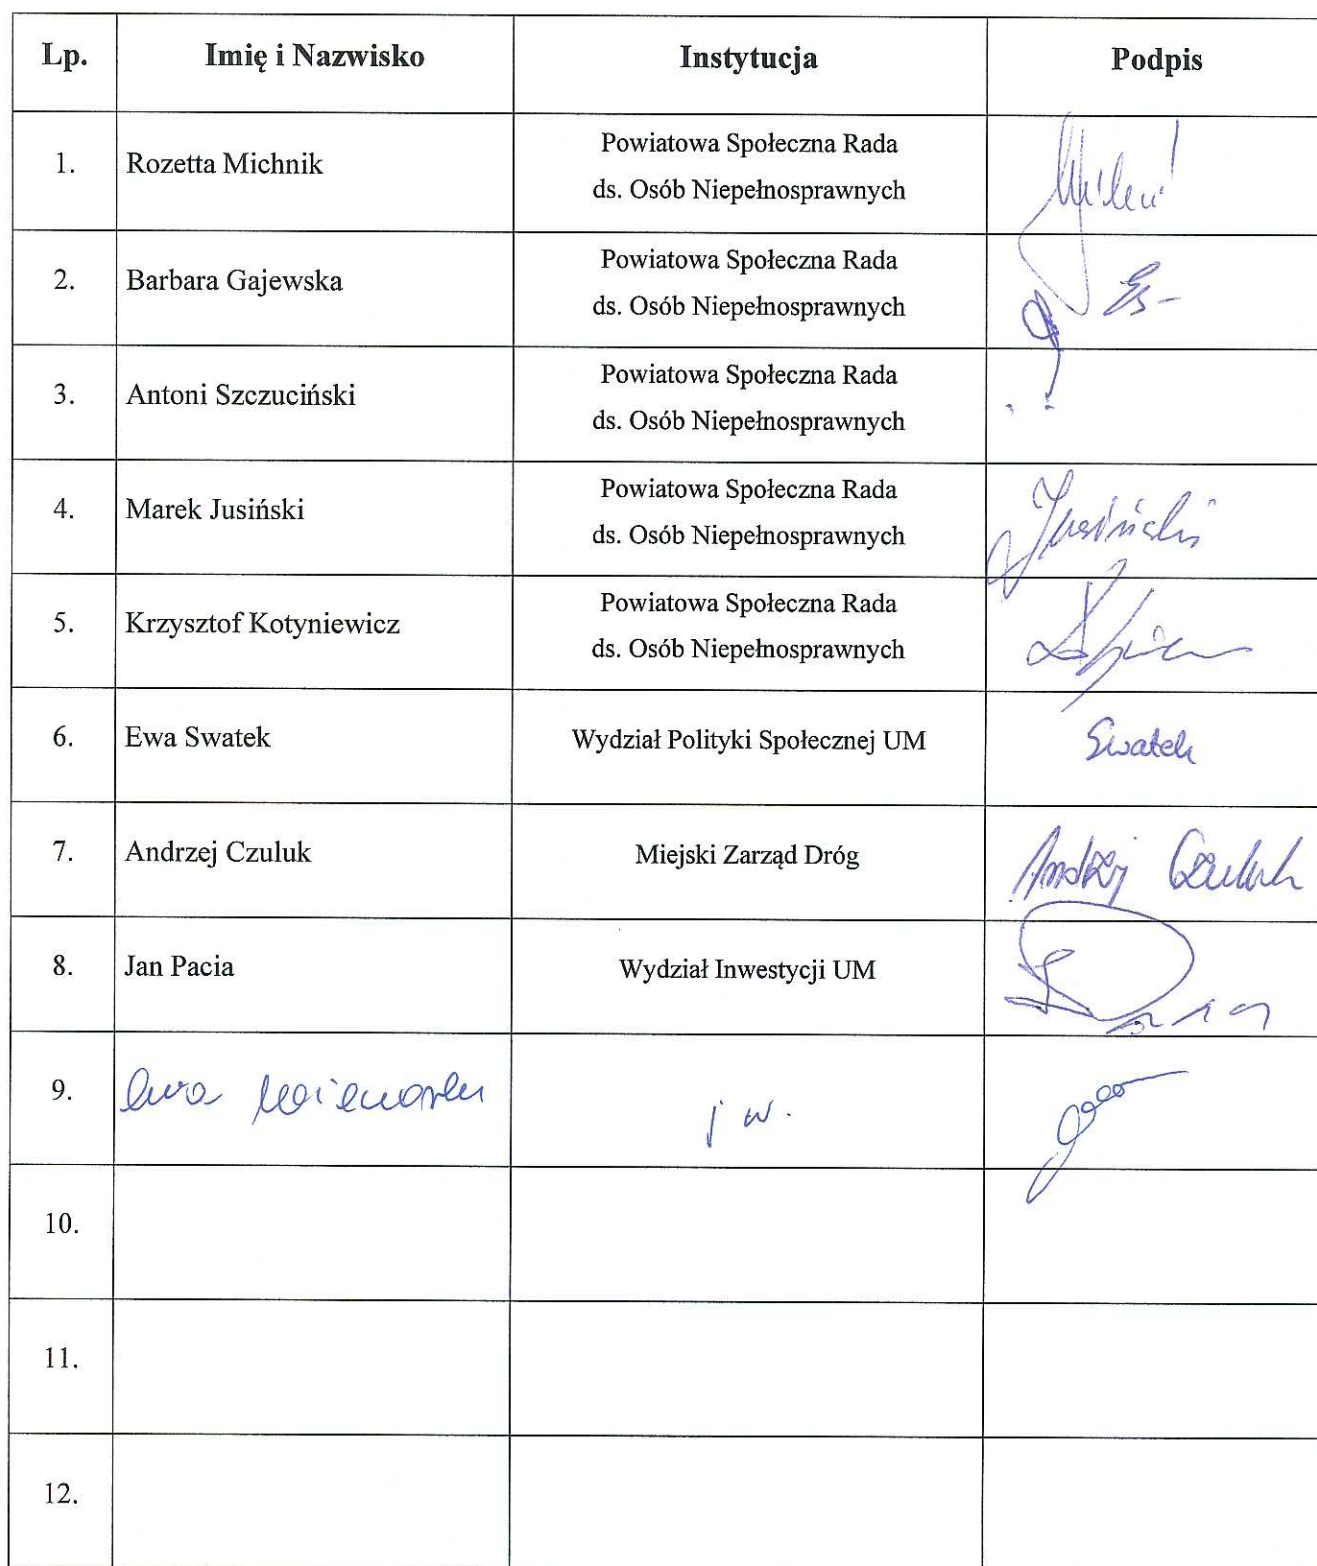 Lp. Imię i Nazwisko Instytucja Podpis
1. Rozetta Michnik Powiatowa Społeczna Rada
ds. Osób Niepełnosprawnych
2. Barbara Gajewska Powiatowa Społeczna Rada
ds. Osób Niepełnosprawnych
3. Antoni Szczuciński Powiatowa Społeczna Rada
ds. Osób Niepełnosprawnych
4. Marek Jusiński Powiatowa Społeczna Rada
ds. Osób Niepełnosprawnych Jusiński
5. Krzysztof Kotyniewicz Powiatowa Społeczna Rada
ds. Osób Niepełnosprawnych
6. Ewa Swatek Wydział Polityki Społecznej UM Swatek
7. Andrzej Czuluk Miejski Zarząd Dróg Andrzej Czuluk
8. Jan Pacia Wydział Inwestycji UM
9. Ewa j w.
10.
11.
12.